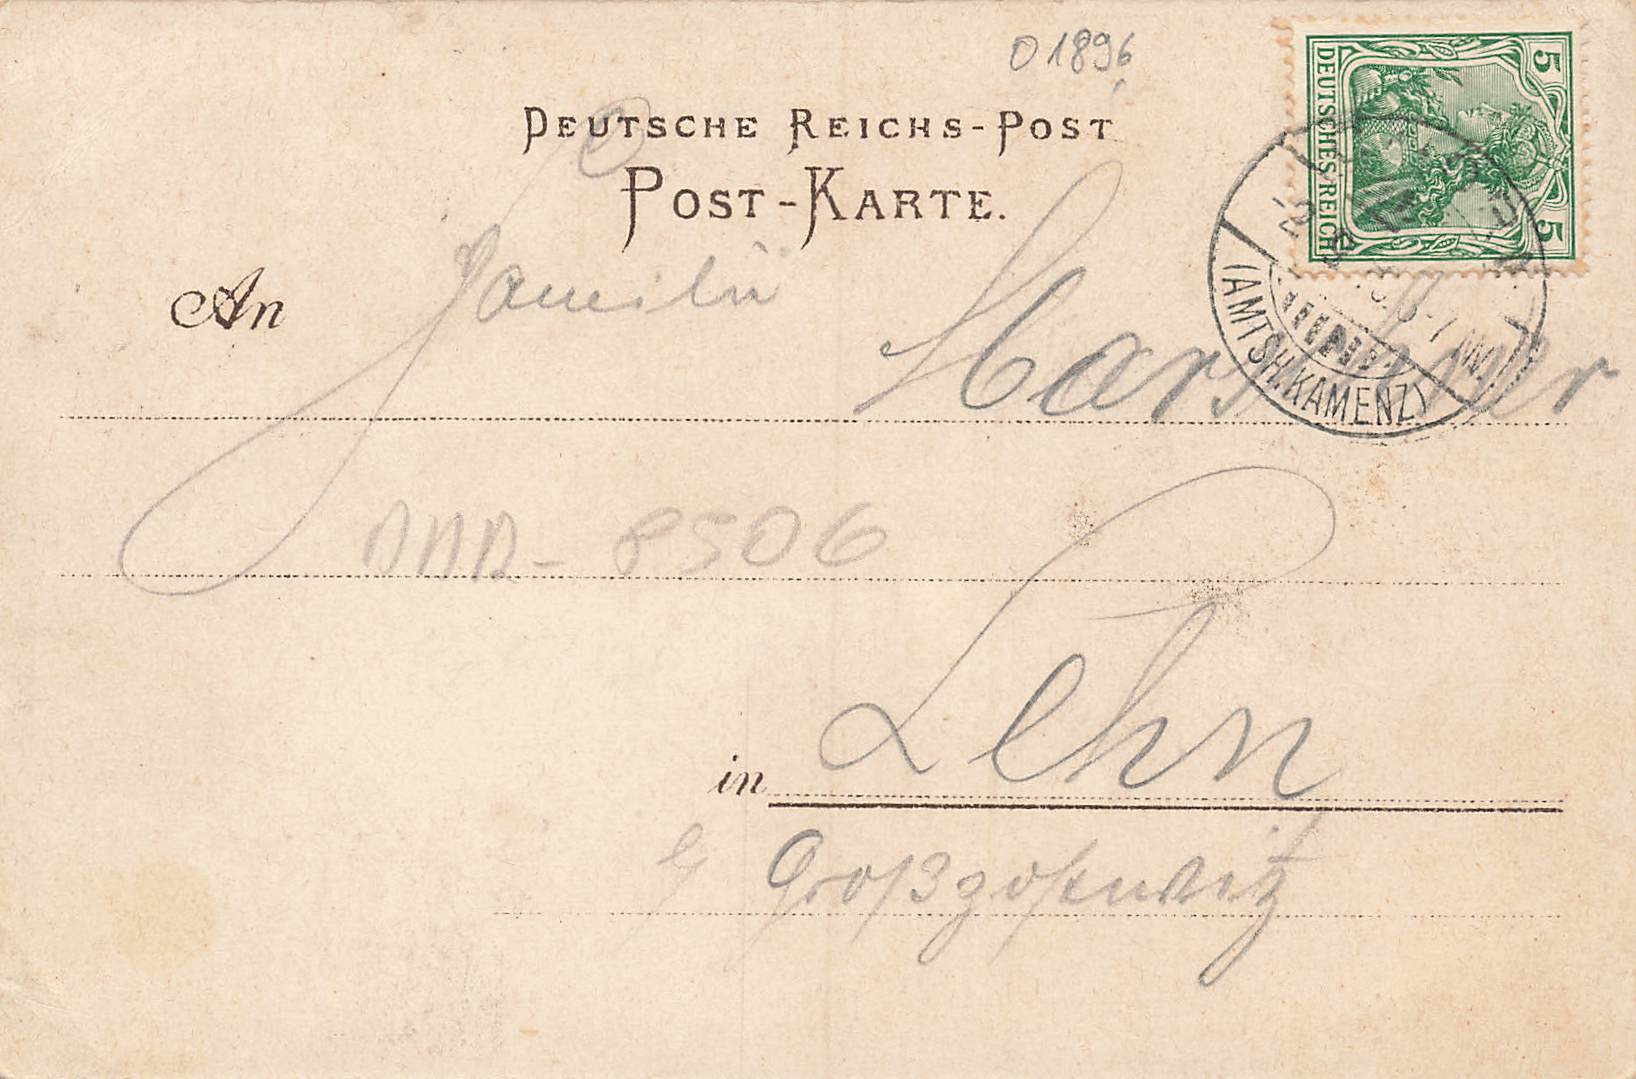 O 1896
DEUTSCHE REICHS-POST
POST-KARTE.
5 DEUTSCHES REICH 5
An Familie
(AMTSH. KAMENZ)
8506
in Lehn
Großpostwitz